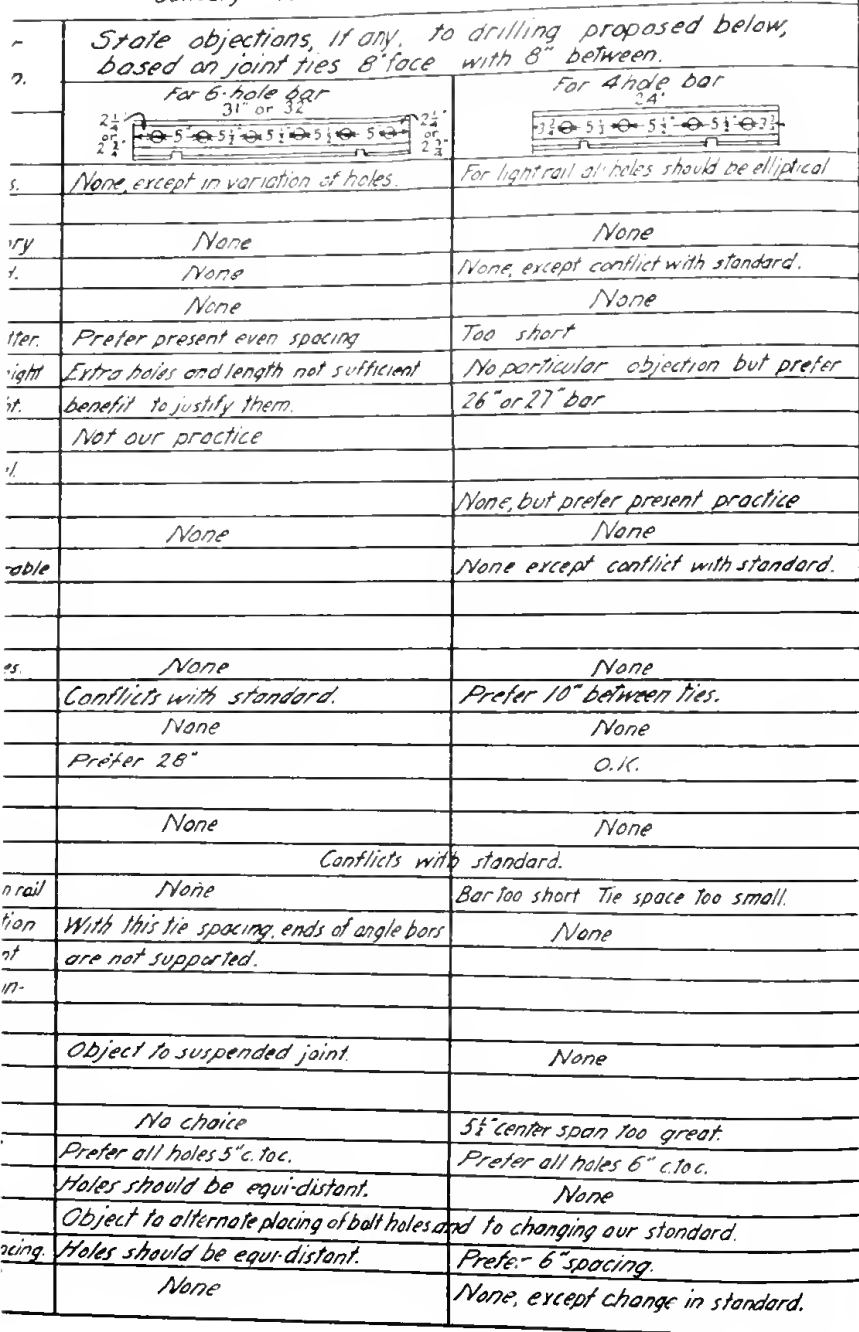 State objections, if any, to drilling proposed below,
based on joint ties 8" face with 8" between.
For 6-hole bar
31" or 32"
For 4 hole bar
24"
2 1/4" or 2 3/4" 5" 5 1/2" 5 1/2" 5 1/2" 5" 2 1/4" or 2 3/4"
5 1/2" 5 1/2" 5 1/2"
s. None, except in variation of holes. For light rail all holes should be elliptical
ry None None
d. None None, except conflict with standard.
None None
tter. Prefer present even spacing Too short
ight Extra holes and length not sufficient No particular objection but prefer
ht. benefit to justify them. 26" or 27" bar
Not our practice
None, but prefer present practice
None None
able None except conflict with standard.
es. None None
Conflicts with standard. Prefer 10" between ties.
None None
Prefer 28" O.K.
None None
Conflicts with standard.
n rail None Bar too short Tie space too small.
tion With this tie spacing, ends of angle bars None
nt are not supported.
on-
Object to suspended joint. None
No choice 5 1/2" center span too great.
Prefer all holes 5" c. to c. Prefer all holes 6" c. to c.
Holes should be equi-distant. None
Object to alternate placing of bolt holes and to changing our standard.
acing. Holes should be equi-distant. Prefer 6" spacing.
None None, except change in standard.